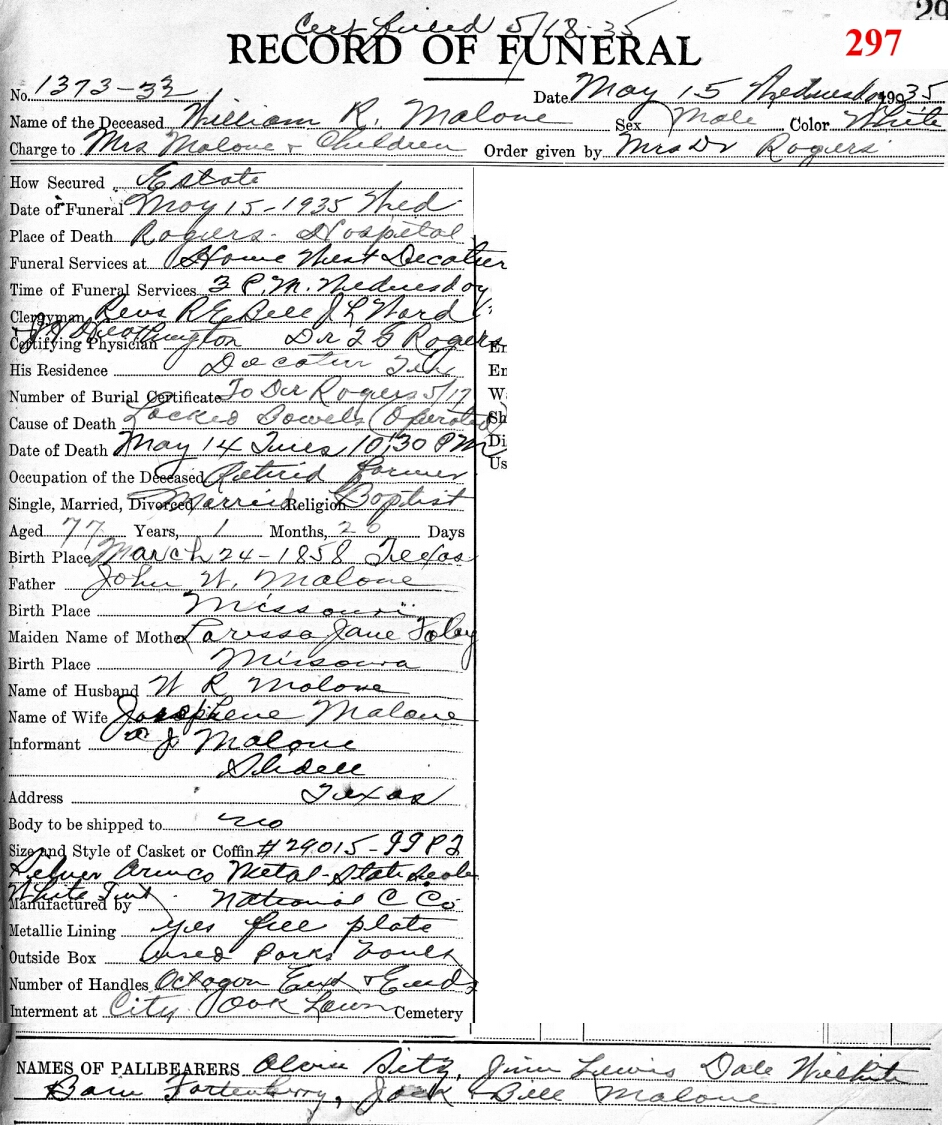 29
Cert filed 5/18-35
RECORD OF FUNERAL
297
No. 1373-33 Date May 15 Wednesday 1935
Name of the Deceased William R. Malone Sex Male Color White
Charge to Mrs Malone & Children Order given by Mrs Dr Rogers
How Secured Estate
Date of Funeral May 15-1935 Wed
Place of Death Rogers- Hospital
Funeral Services at Home West Decatur
Time of Funeral Services 3 P.M. Wednesday
Clergyman Revs R E Bell J L Ward
Certifying Physician Dr Rogers
His Residence Decatur Tex
Number of Burial Certificate To Dr Rogers 5/17
Cause of Death Locked Bowels (Operated)
Date of Death May 14 Tues 10;30 PM
Occupation of the Deceased Retired Farmer
Single, Married, Divorced Married Religion Baptist
Aged 77 Years, 1 Months, 20 Days
Birth Place March 24-1858 Texas
Father John W. Malone
Birth Place Missouri
Maiden Name of Mother Larissa Jane Foley
Birth Place Missoura
Name of Husband W R Malone
Name of Wife Josephene Malone
Informant J Malone
Slidell
Address Texas
Body to be shipped to no
Size and Style of Casket or Coffin #29015-
Silver Armco Metal-State Seale
White Tint
Manufactured by National C Co
Metallic Lining yes full plate
Outside Box used Parks Vault
Number of Handles Octagon Ext & Ends
Interment at City Oak Lawn Cemetery
Er
Er
W
Sh
Di
Us
NAMES OF PALLBEARERS Alvin Sitz, Jim Lewis Dale Wilhite
Bam Fortenberry, Jack & Bill Malone